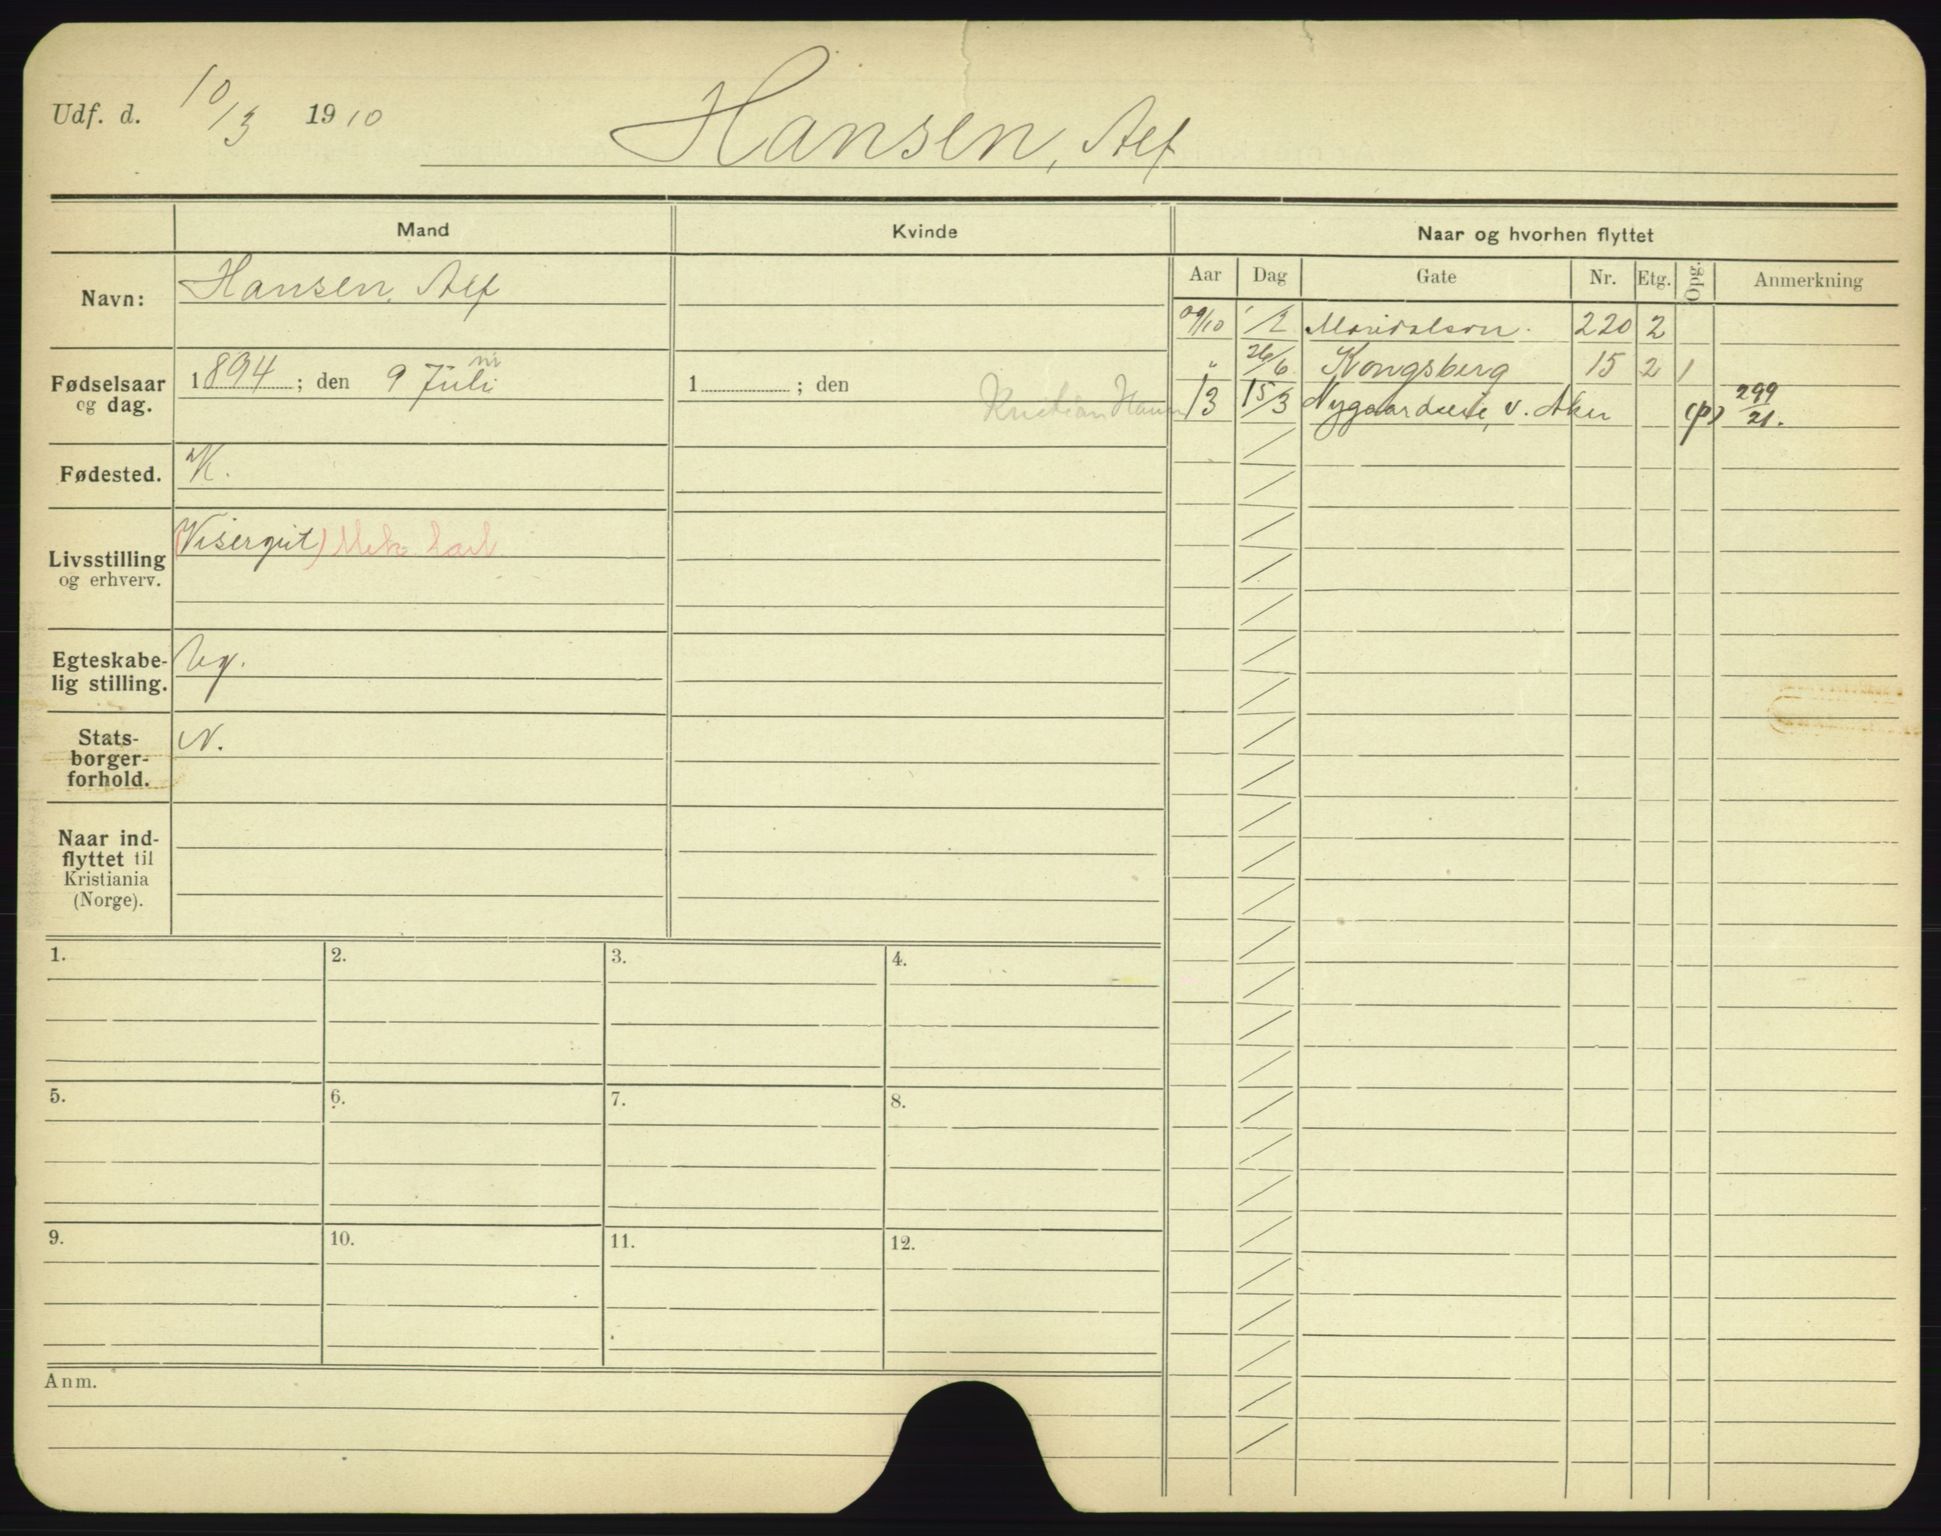 Udf. d. 10/3 1910
Hansen, Alf
Mand
Kvinde
Naar og hvorhen flyttet
Aar Dag Gate Nr. Etg. Opg. Anmerkning
Navn: Hansen, Alf
Fødselsaar og dag. 1894; den 9 Juli
1 ; den
Kristian Hansen
Fødested. K.
Livsstilling og erhverv. (Visergut)
Egteskabe-
lig stilling. Ug.
Stats-
borger-
forhold. N.
Naar ind-
flyttet til
Kristiania
(Norge).
09/10 1/2 Maridalsvn. 220 2
" 26/6 Kongsberg 15 2 1
13 15/3 v. Aker (p) 299/21.
1. 2. 3. 4.
5. 6. 7. 8.
9. 10. 11. 12.
Anm.